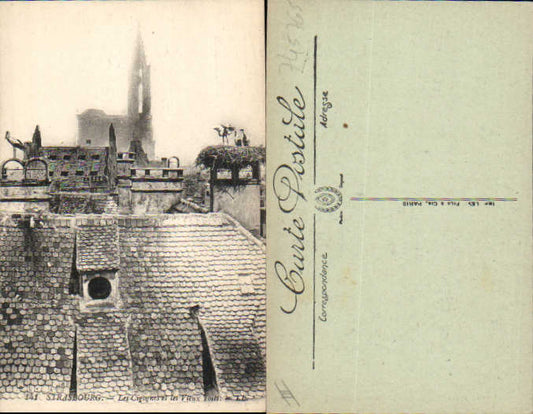 141 STRASBOURG. — Les Cigognes et les Vieux Toits. — LL
Carte Postale
Correspondance
Adresse
IMP. LÉVY FILS & Cie, PARIS